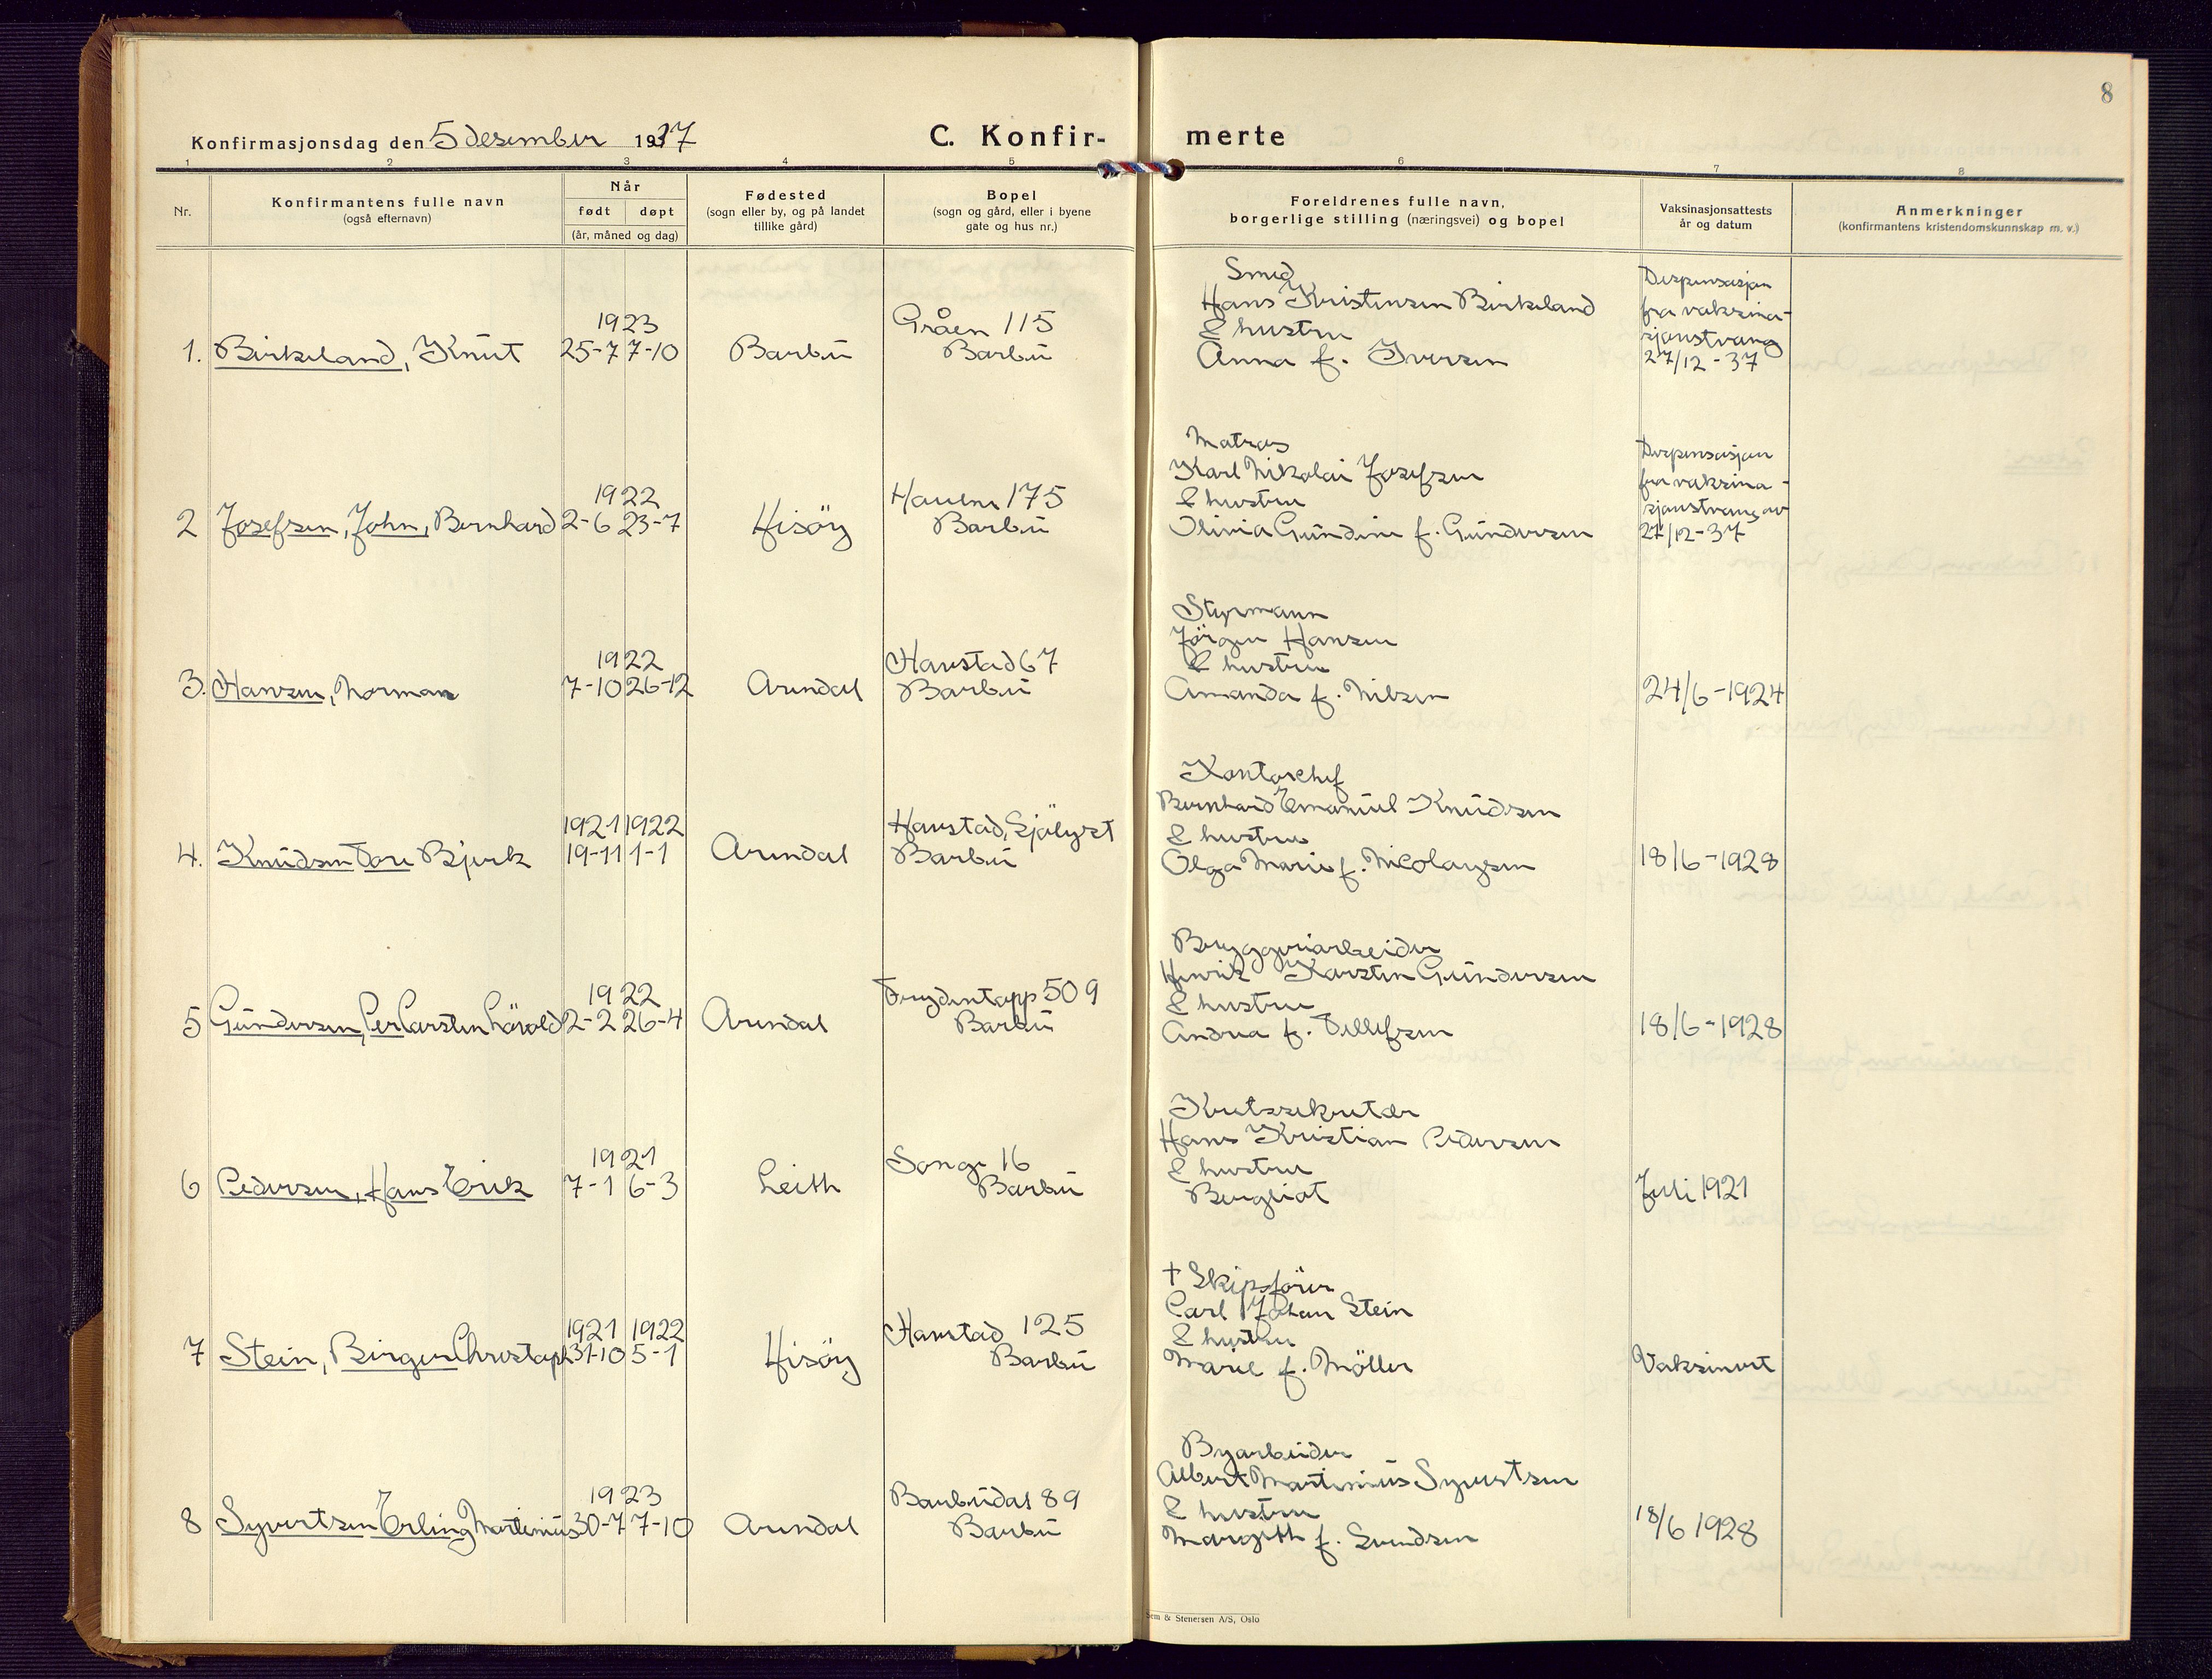 8
Konfirmasjonsdag den 5 desember 1937
C. Konfir-
merte
1 2 3 4 5 6 7 8
Nr.
Konfirmantens fulle navn
(også efternavn)
Når
født døpt
(år, måned og dag)
Fødested
(sogn eller by, og på landet
tillike gård)
Bopel
(sogn og gård, eller i byene
gate og hus nr.)
Foreldrenes fulle navn,
borgerlige stilling (næringsvei) og bopel
Vaksinasjonsattests
år og datum
Anmerkninger
(konfirmantens kristendomskunnskap m. v.)
1. Birkeland, Knut
1923
25-7 7-10
Barbu
Gråen 115
Barbu
Smed
Hans Kristensen Birkeland
& hustru
Anna f. Iversen
Dispensasjon
fra vaksina-
sjonstvang
27/12-37
2 Josefsen, John, Bernhard
1922
2-6 23-7
Hisöy
175
Barbu
Matros
Karl Nikolai Josefsen
& hustru
Olivia Gundine f. Gundersen
Dispensasjon
fra vaksina-
sjonstvang av
27/12-37
3. Hansen, Norman
1922
7-10 26-12
Arendal
Harstad 67
Barbu
Styrmann
Jörgen Hansen
& hustru
Amanda f. Nilsen
24/6-1924
4. Knudsen Tore Bjerk
1921 1922
19-11 1-1
Arendal
Harstad, Sjölyst
Barbu
Kontorchef
Bernhard Emanuel Knudsen
& hustru
Olga Marie f. Nicolaysen
18/6-1928
5 Gundersen, Per Carsten Lövold
1922
2-2 26-4
Arendal
Frydentopp 509
Barbu
Bryggeriarbeider
Henrik Karsten Gundersen
& hustru
Andrea f. Tellefsen
18/6-1928
6 Pedersen, Hans Erik
1921
7-1 6-3
Leith
Songe 16
Barbu
Kretssekretær
Hans Kristian Pedersen
& hustru
Bergliot
Juli 1921
7 Stein, Birger Christoph
1921 1922
31-10 5-1
Hisöy
Harstad 125
Barbu
† Skipsförer
Carl Johan Stein
& hustru
Marie f. Möller
Vaksinert
8 Syvertsen Erling Martinius
1923
30-7 7-10
Arendal
Barbudal 89
Barbu
Byarbeider
Albert Martinius Syvertsen
& hustru
Margith f. Svendsen
18/6 1928
Sem & Stenersen A/S, Oslo